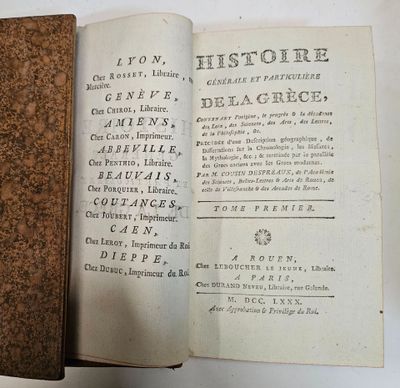 LYON,
Chez ROSSET, Libraire, rue
Merciere.
GENÈVE,
Chez CHIROL, Libraire.
AMIENS,
Chez CARON, Imprimeur.
ABBEVILLE,
Chez PENTHIO, Libraire.
BEAUVAIS,
Chez PORQUIER, Libraire.
COUTANCES,
Chez JOUBERT, Imprimeur.
CAEN,
Chez LEROY, Imprimeur du Roi
DIEPPE,
Chez DUBUC, Imprimeur du Roi.
HISTOIRE
GÉNÉRALE ET PARTICULIÈRE
DE LA GRÈCE,
CONTENANT l'origine, le progrès & la décadence
des Loix, des Sciences, des Arts, des Lettres,
de la Philosophie, &c.
PRÉCÉDÉE d'une Description géographique, de
Dissertations sur la Chronologie, les Mesures,
la Mythologie, &c.; & terminée par le parallèle
des Grecs anciens avec les Grecs modernes.
PAR M. COUSIN DESPRÉAUX, de l'Académie
des Sciences, Belles-Lettres & Arts de Rouen, de
celle de Villefranche & des Arcades de Rome.
TOME PREMIER.
A ROUEN,
Chez LEBOUCHER LE JEUNE, Libraire.
A PARIS,
Chez DURAND NEVEU, Libraire, rue Galande.
M. DCC. LXXX.
Avec Approbation & Privilége du Roi.